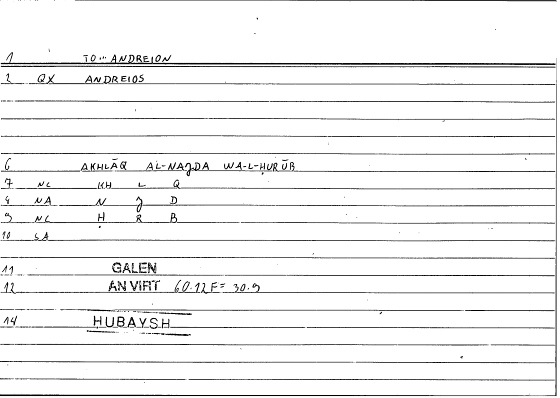 1 TO.. ANDREION
2 QX ANDREIOS
6 AKHLĀQ AL-NAJDA WA-L-ḤURŪB
7 NC KH L Q
8 NA N J D
9 NC Ḥ R B
10 SA
11 GALEN
12 AN VIRT 60.12 F = 30.9
14 HUBAYSH